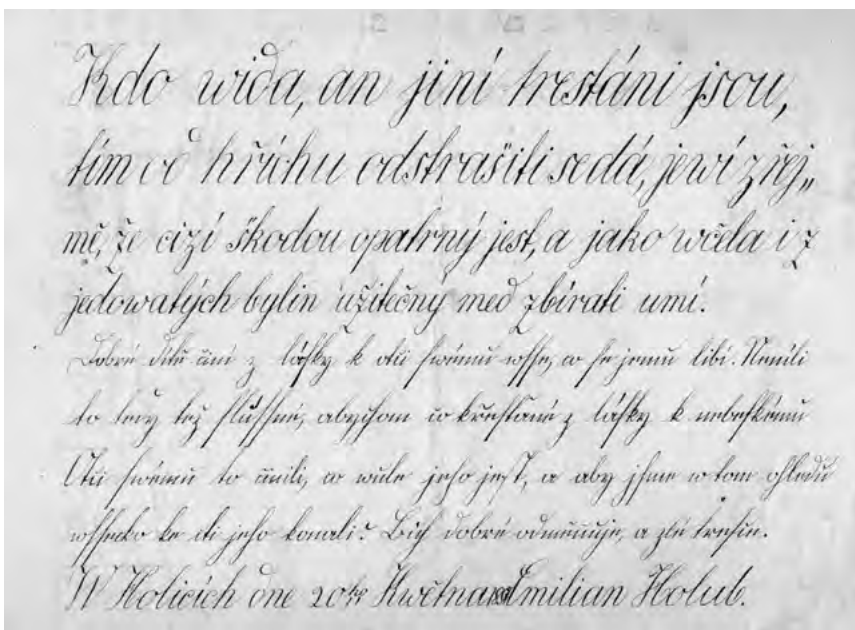 Kdo wida, an jiní trestáni jsou,
tím od hříchu odstrašiti se dá, jewí zřej„
mě, že cizí škodou opatrný jest, a jako wčela i z
jedowatých bylin užitečný med zbírati umí.
Dobré dítě činí z lásky k otci swému wsse, co se jemu líbí. Neníli
to tedy též slussné, abychom co křesťané z lásky k nebeskému
Otci swému to činili, co wůle jeho jest, a aby jsme w tom ohledu
wssecko ke cti jeho konali? Bůh dobré odměňuje, a zlé tresce.
W Holicích dne 20ho Kwětna Emilian Holub.